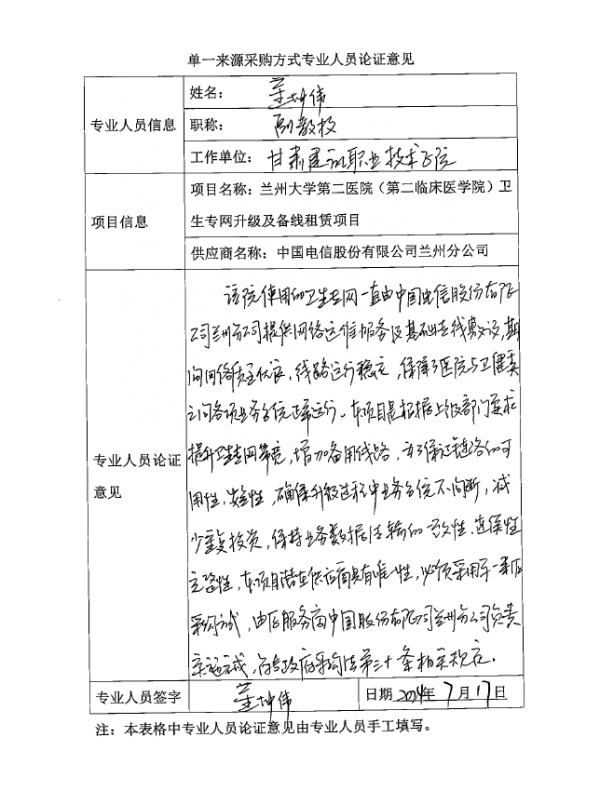 单一来源采购方式专业人员论证意见
专业人员信息
姓名：董坤伟
职称：副教授
工作单位：甘肃建筑职业技术学院
项目信息
项目名称：兰州大学第二医院（第二临床医学院）卫
生专网升级及备线租赁项目
供应商名称：中国电信股份有限公司兰州分公司
专业人员论证
意见
该院使用的卫生专网一直由中国电信股份有限
公司兰州分公司提供网络运维服务及基础专线敷设，期
间网络质量优良，线路运行稳定，保障了医院与卫健委
之间各项业务系统正常运行。本项目是根据上级部门要求
提升卫生专网带宽，增加备用线路，为了保证链路的可
用性、安全性，确保升级过程中业务系统不间断，减
少重复投资，保持业务数据传输的一致性、连续性
完整性，本项目潜在供应商具有唯一性，必须采用单一来源
采购方式，由原服务商中国股份有限公司兰州分公司负责
实施完成，符合政府采购法第三十一条相关规定。
专业人员签字
董坤伟
日期 2024年7月17日
注：本表格中专业人员论证意见由专业人员手工填写。